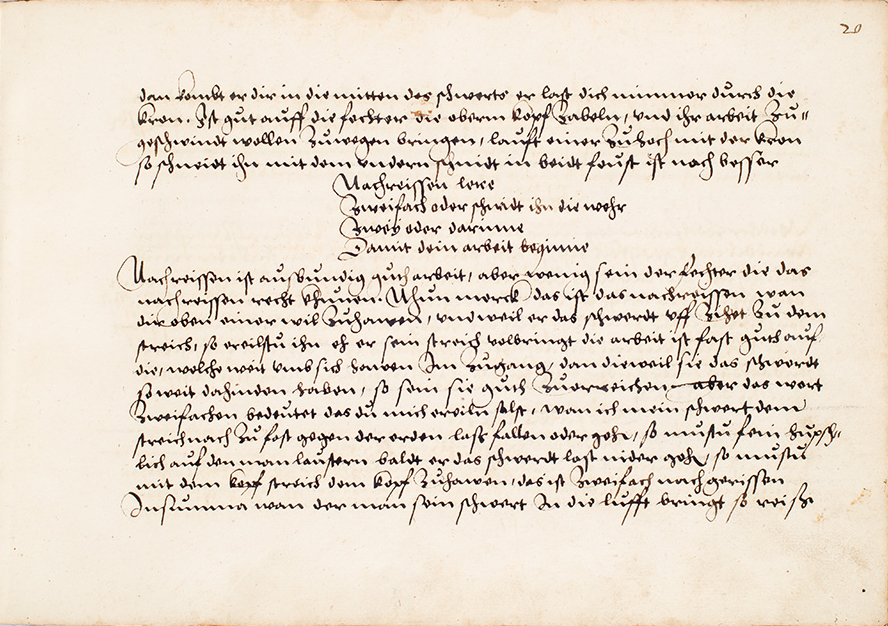 20
dan kombt er dir in die mitten des schwerts er last dich nimmer durch die
kron. Ist gut auff die fechter die oberm kopf zabeln, und ihr arbeit zu=
geschwindt wollen zuwegen bringen, laufft einer zu hoch mit der kron
so schneidt ihn mit dem undern schnidt in beidt feust ist noch besser
Nachreissen lere
Zweifach oder schnidt ihn die wehr
Zwey oder darinne
Damit dein arbeit beginne
Nachreissen ist ausbundig guth arbeit, aber wenig sein der fechter die das
nachreissen recht khunen. Nhun merck das ist das nachreissen wan
dir oben einer wil zuhawen, und weil er das schwerdt uff zihet zu dem
streich, so ereilstu ihn eh er sein streich volbringt die arbeit ist fast guth auf
die, welche weit umb sich hawen Im zugang, dan dieweil sie das schwerdt
so weit dahinden haben, so sein sie guth zuerreichen aber das wort
Zweifachen bedeutet das du mich ereiln solst, wan ich mein schwert dem
streich nach zu fast gegen der erden lass fallen oder gehn, so mustu fein hupsch=
lich auf den man laustern baldt er das schwerdt last nider gehn, so mustu
mit dem kopf streich dem kopf zuhawen, das ist zweifach nachgerissen
In summa wan der man sein schwert In die lufft bringt so reiss